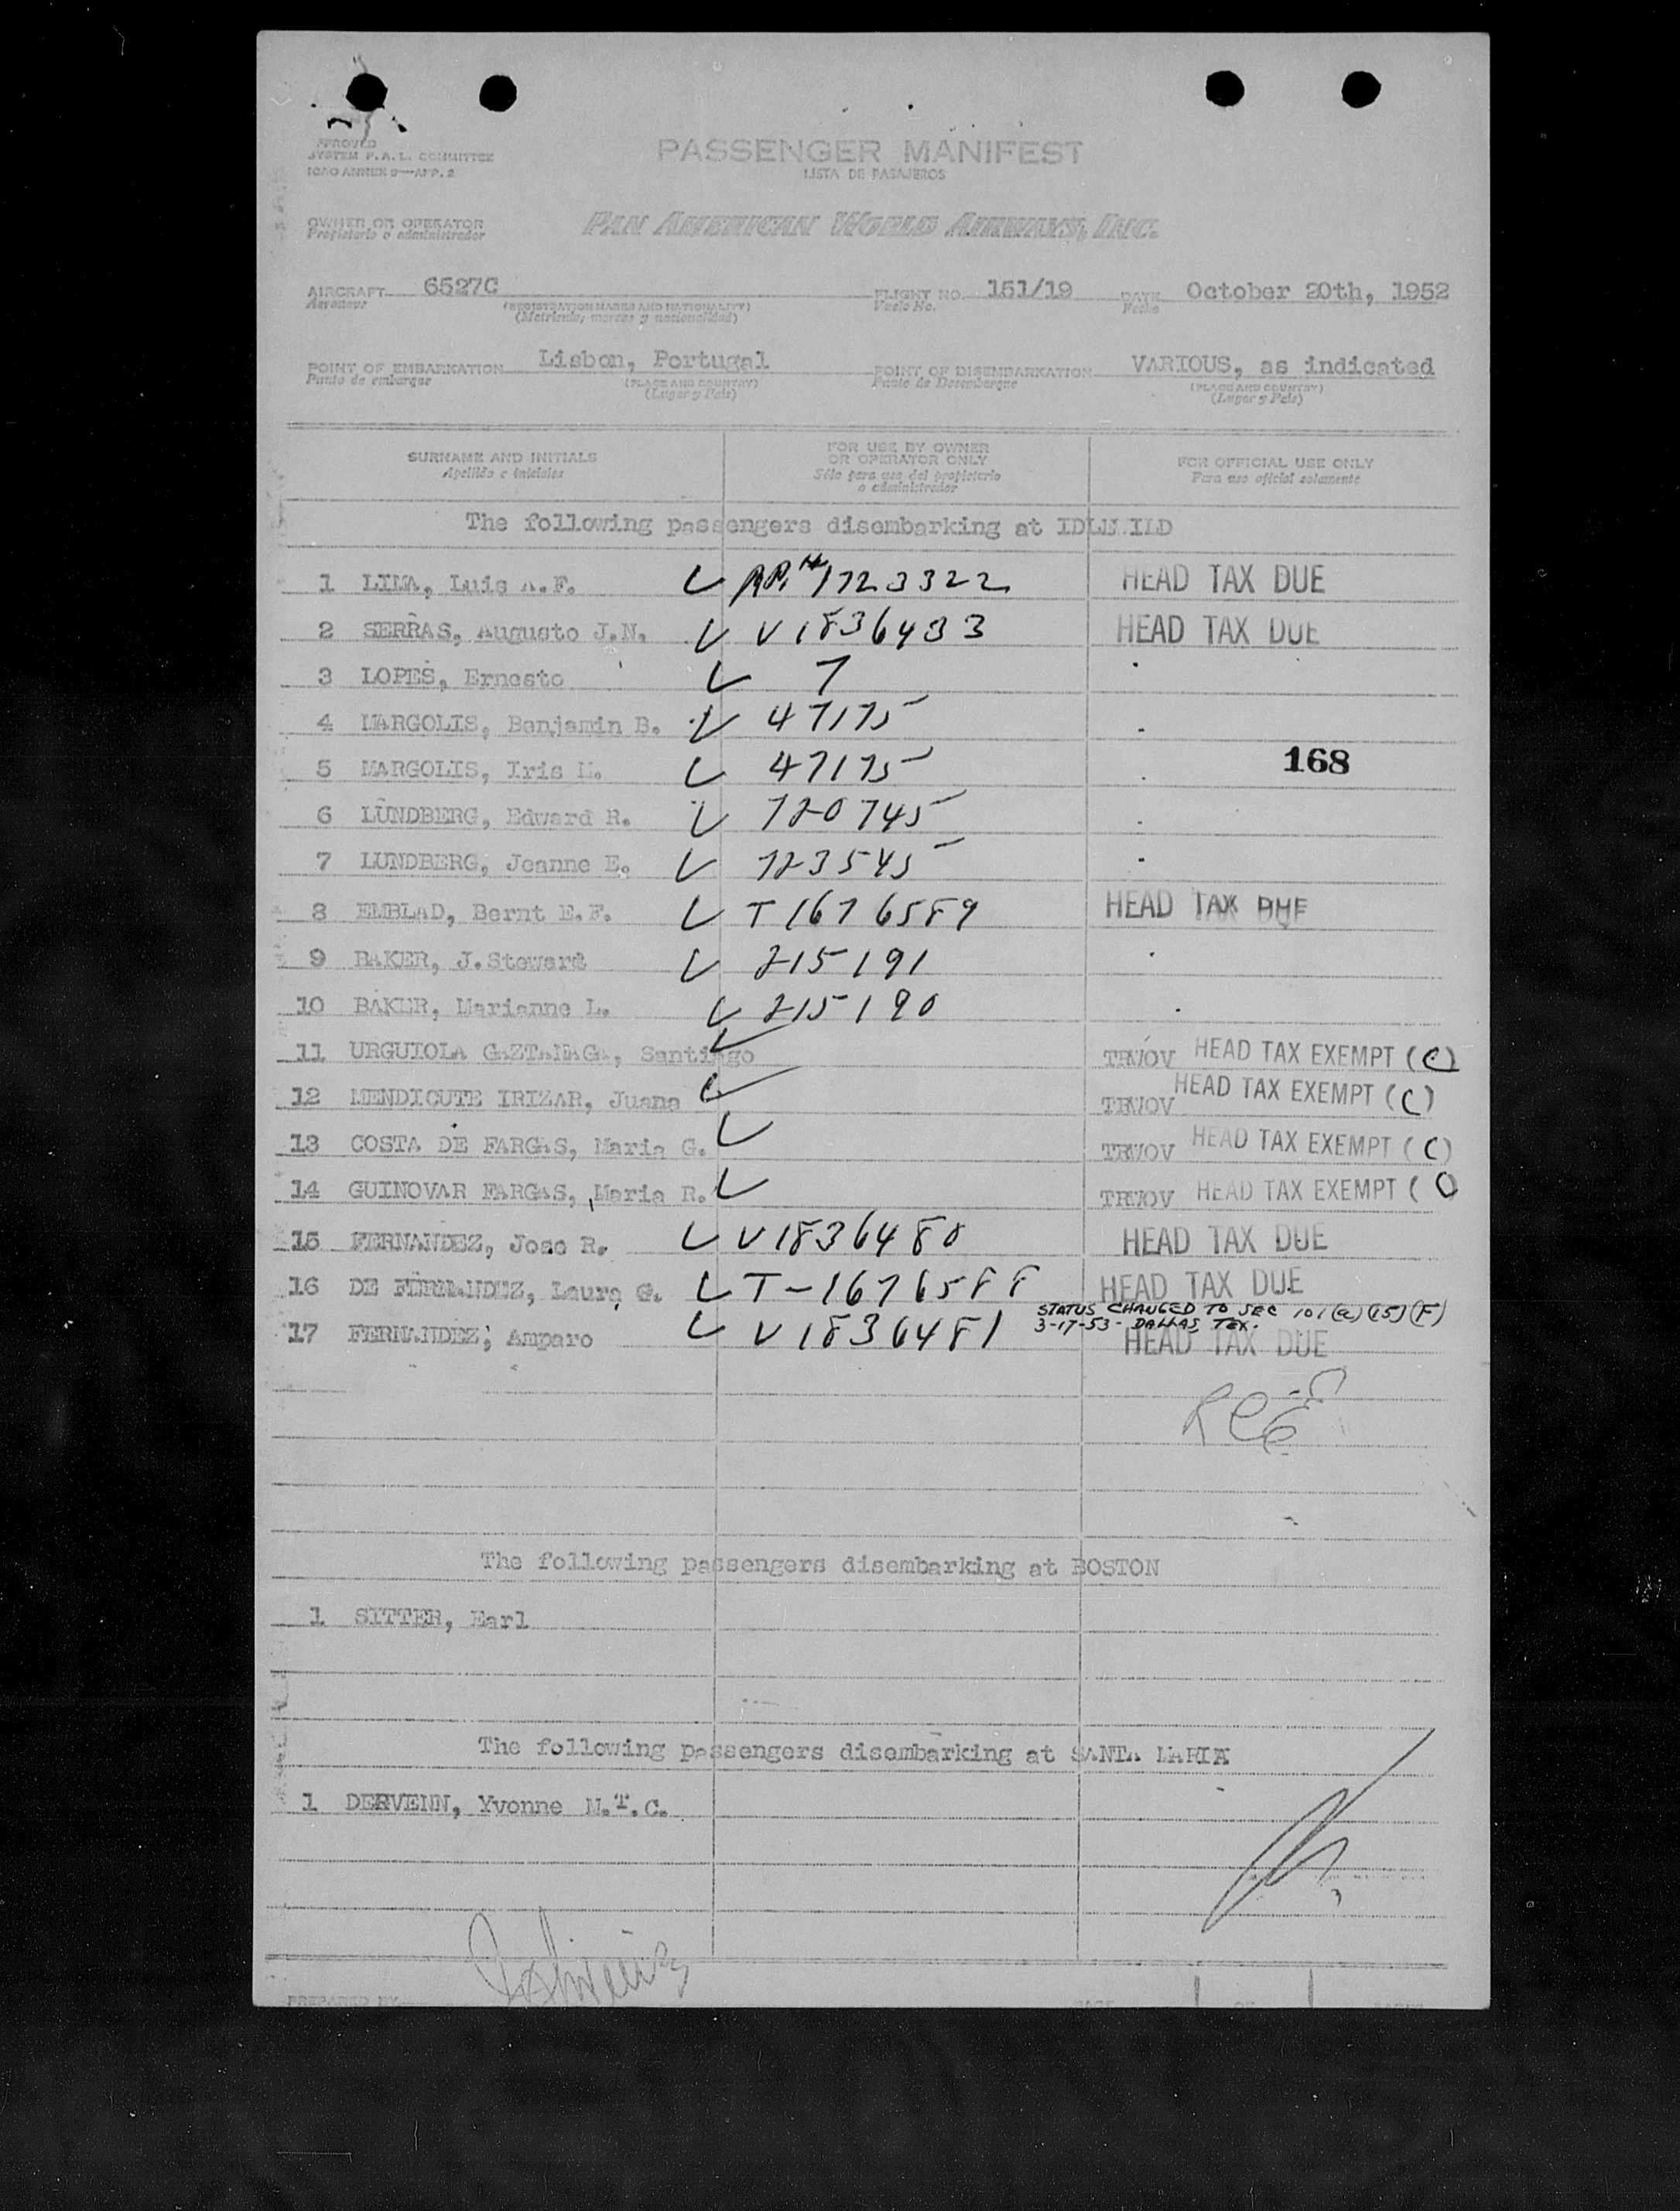 APPROVED
SYSTEM F.A.L. COMMITTEE
ICAO ANNEX 9—APP. 2
PASSENGER MANIFEST
LISTA DE PASAJEROS
OWNER OR OPERATOR
Propietario o administrador
PAN AMERICAN WORLD AIRWAYS, INC.
AIRCRAFT 6527C FLIGHT NO. 151/19 DATE October 20th, 1952
Aeronave (REGISTRATION MARKS AND NATIONALITY) Vuelo No. Fecha
(Matrícula, marcas y nacionalidad)
POINT OF EMBARKATION Lisbon, Portugal POINT OF DISEMBARKATION VARIOUS, as indicated
Punto de embarque (PLACE AND COUNTRY) Punto de Desembarque (PLACE AND COUNTRY)
(Lugar y País) (Lugar y País)
SURNAME AND INITIALS FOR USE BY OWNER OR OPERATOR ONLY FOR OFFICIAL USE ONLY
Apellido e iniciales Sólo para uso del propietario o administrador Para uso oficial solamente
The following passengers disembarking at IDLW.ILD
1 LIMA, Luis A.F. 1723322 HEAD TAX DUE
2 SERRAS, Augusto J.N. V1836483 HEAD TAX DUE
3 LOPES, Ernesto 7
4 MARGOLIS, Benjamin B. 47175
5 MARGOLIS, Iris M. 47175 168
6 LUNDBERG, Edward R. 720745
7 LUNDBERG, Jeanne E. 723545
8 EMBLAD, Bernt E.F. T1676589 HEAD TAX DUE
9 BAKER, J.Steward 215191
10 BAKER, Marianne L. 215190
11 URGUIOLA GAZTANAGA, Santiago TRWOV HEAD TAX EXEMPT (C)
12 MENDICUTE IRIZAR, Juana TRWOV HEAD TAX EXEMPT (C)
13 COSTA DE FARGAS, Maria G. TRWOV HEAD TAX EXEMPT (C)
14 GUINOVAR FARGAS, Maria R. TRWOV HEAD TAX EXEMPT (C)
15 FERNANDEZ, Jose R. V1836480 HEAD TAX DUE
16 DE FERNANDEZ, Laura G. T-1676588 HEAD TAX DUE
STATUS CHANGED TO SEC 101(a)(15)(F)
3-17-53- DALLAS, TEX.
17 FERNANDEZ, Amparo V1836481 HEAD TAX DUE
The following passengers disembarking at BOSTON
1 SITTER, Earl
The following passengers disembarking at SANTA MARIA
1 DERVENN, Yvonne M.T.C.
PREPARED BY PAGE 1 OF 1 PAGES